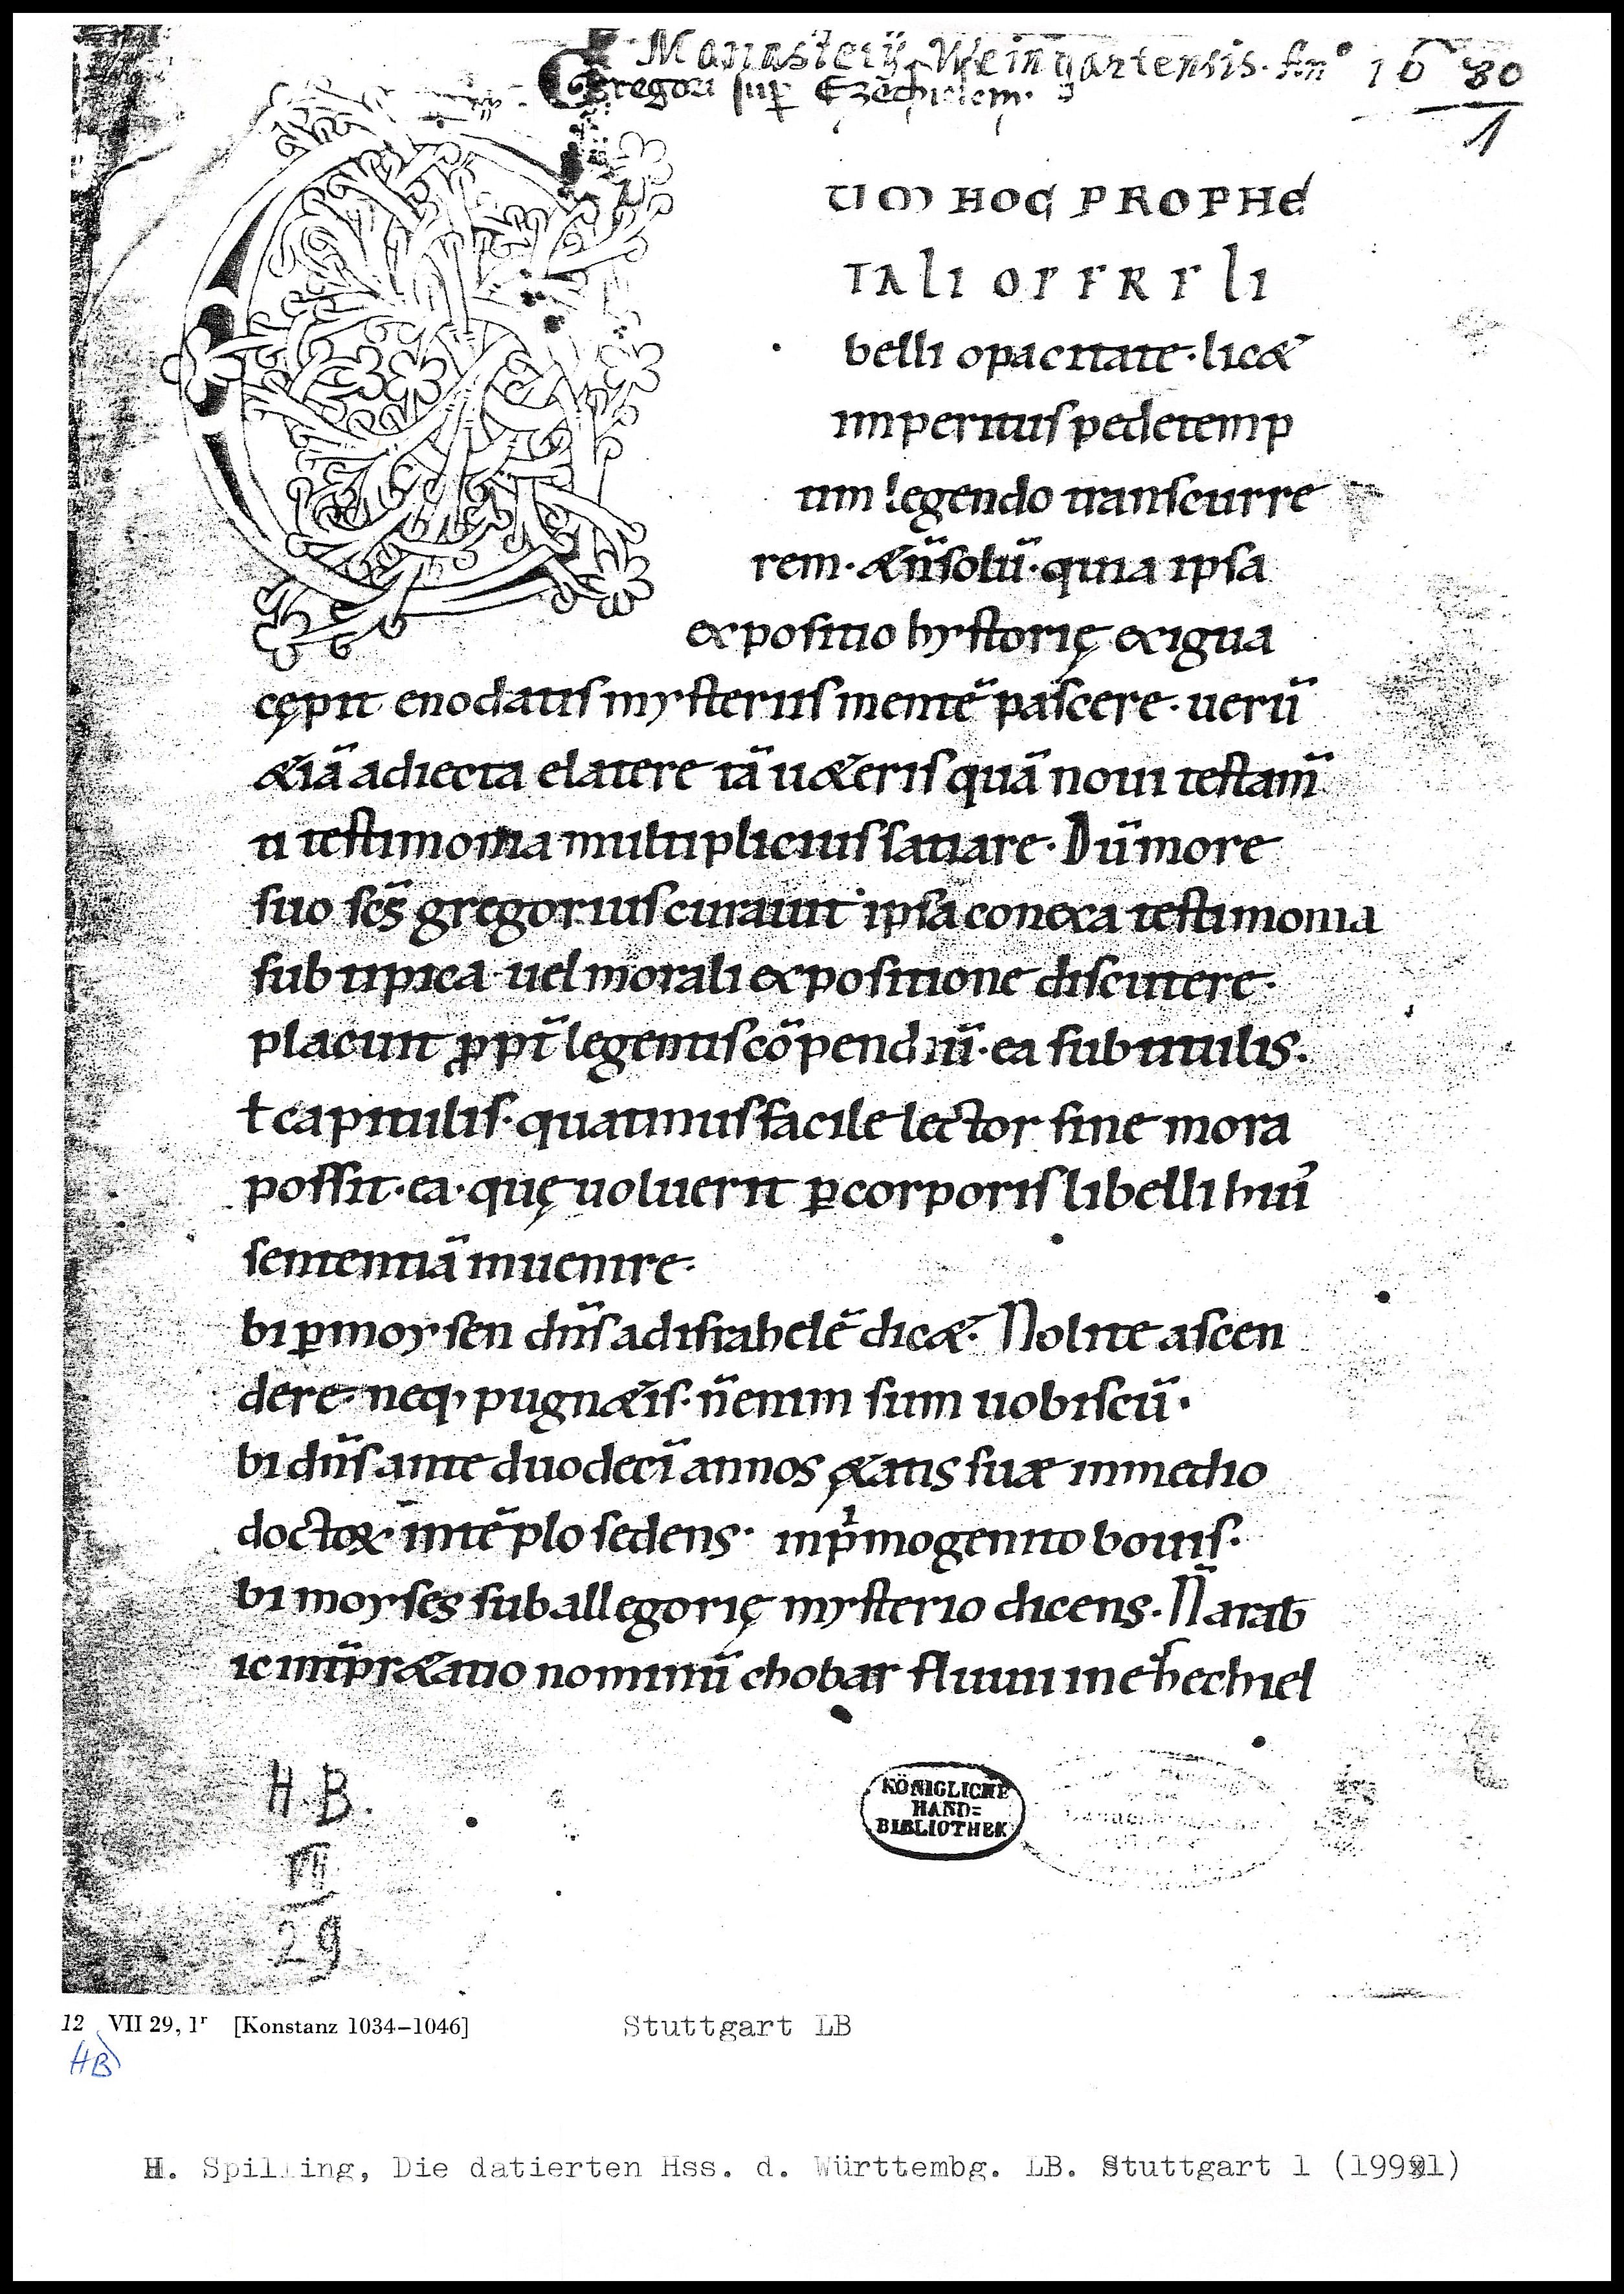 Monasterij Weingartensis. An° 1680
Gregori sup̄ Ezechielem.
1
UM HOC PROPHE
TALI OPERE LI
belli opacitate · licæt
imperitus pedetemp
tim legendo transcurre
rem · &n̄solū · quia ipsa
expositio hystorię exigua
cępit enodatis mysteriis mentē pascere · uerū
&iā adiecta elatere tā u&eris quā noui testam̄
ti testimonia multiplicius satiare · Dū more
suo sc̄s gregorius curauit ipsa conexa testimonia
sub tipica uel morali expositione discutere ·
placuit ꝓpt̄ legentis cōpendiū · ea sub titulis ·
ł capitulis · quatinus facile lector sine mora
possit · ea · quę uoluerit ꝑ corporis libelli hui᾿
sententiā inuenire ·
bi ꝑ moysen dn̄s ad israhelē dic& · Nolite ascen
dere · neq; pugn&is · n̄ enim sum uobiscū ·
bi dn̄s ante duodecī annos ę&atis suæ in medio
doctoꝝ · in tēplo sedens · in pͥmogenito bouis ·
bi moyses sub allegorię mysterio dicens · N̄ arab
ic int̄pr&atio nominū chobar fluuii in ehechiel
H. B.
VII
29
KÖNIGLICHE
HAND=
BIBLIOTHEK
12 VII 29, 1ʳ [Konstanz 1034–1046] Stuttgart LB
HB
H. Spilling, Die datierten Hss. d. Württembg. LB. Stuttgart 1 (1991)